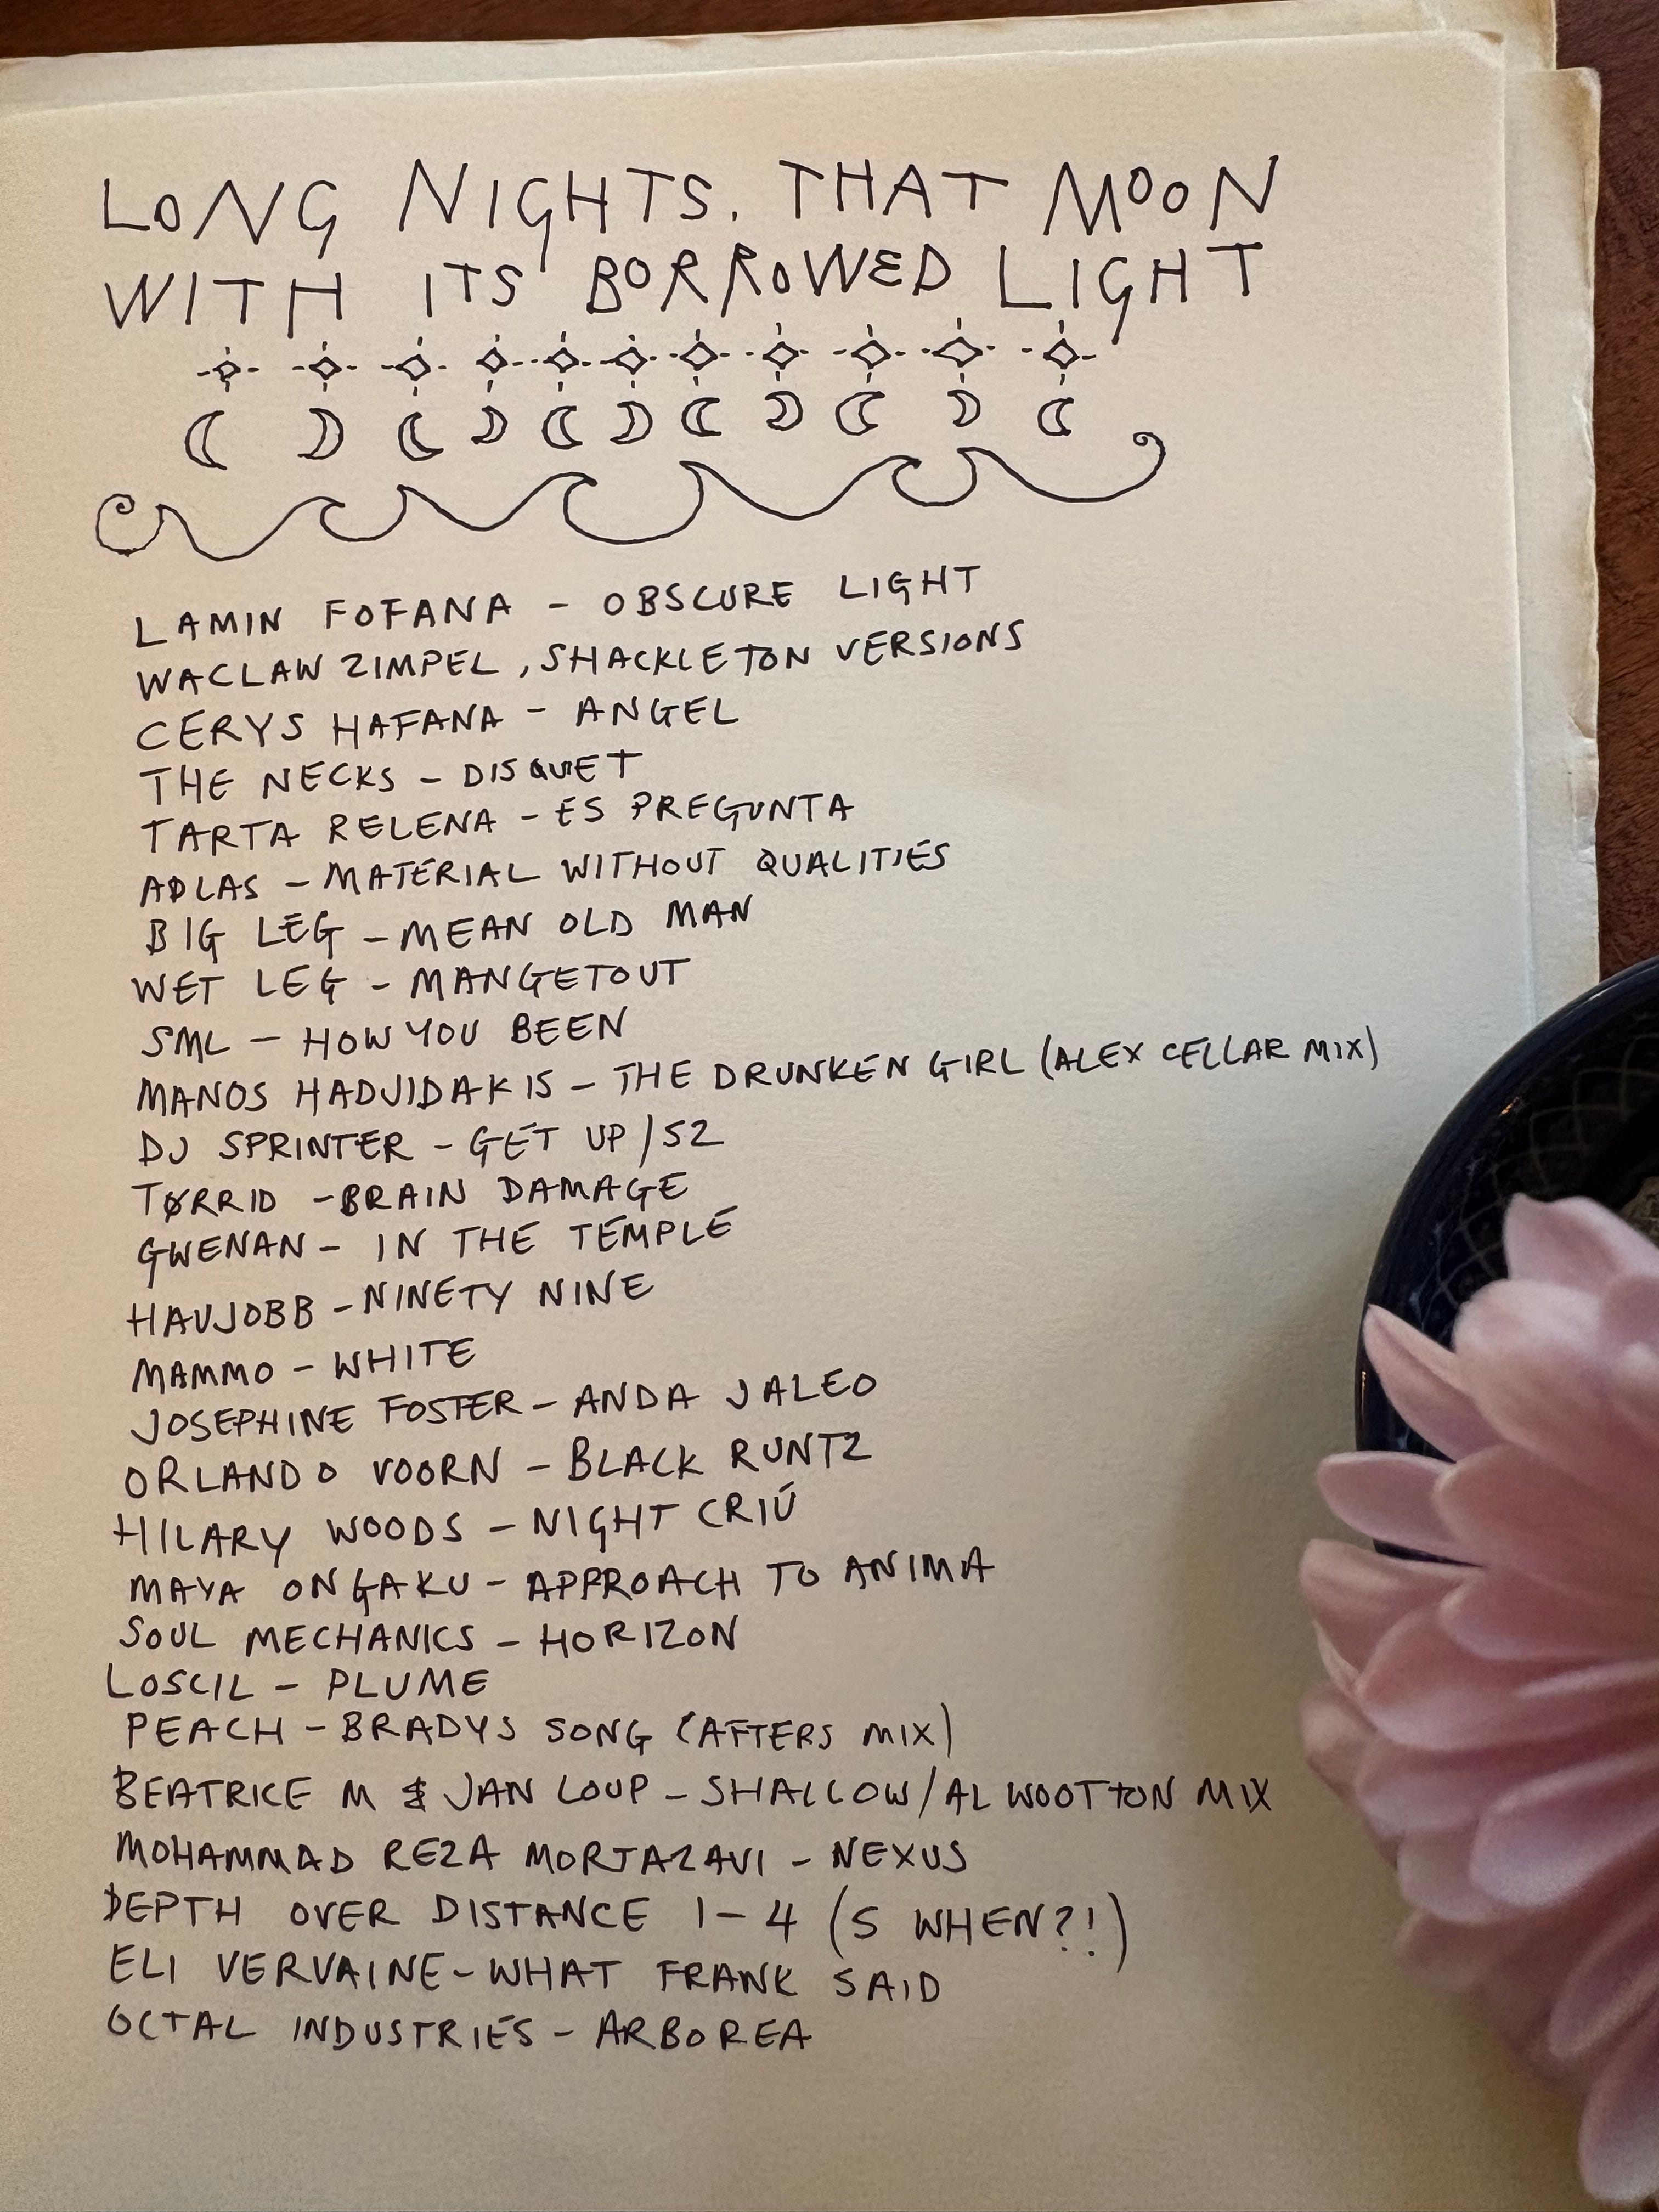 LONG NIGHTS. THAT MOON
WITH ITS BORROWED LIGHT
LAMIN FOFANA - OBSCURE LIGHT
WACLAW ZIMPEL, SHACKLETON VERSIONS
CERYS HAFANA - ANGEL
THE NECKS - DISQUIET
TARTA RELENA - ES PREGUNTA
ADLAS - MATERIAL WITHOUT QUALITIES
BIG LEG - MEAN OLD MAN
WET LEG - MANGETOUT
SML - HOW YOU BEEN
MANOS HADJIDAKIS - THE DRUNKEN GIRL (ALEX CELLAR MIX)
DJ SPRINTER - GET UP/52
TØRRID - BRAIN DAMAGE
GWENAN - IN THE TEMPLE
HAUJOBB - NINETY NINE
MAMMO - WHITE
JOSEPHINE FOSTER - ANDA JALEO
ORLANDO VOORN - BLACK RUNTZ
HILARY WOODS - NIGHT CRIÚ
MAYA ONGAKU - APPROACH TO ANIMA
SOUL MECHANICS - HORIZON
LOSCIL - PLUME
PEACH - BRADYS SONG (AFTERS MIX)
BEATRICE M & JAN LOUP - SHALLOW/AL WOOTTON MIX
MOHAMMAD REZA MORTAZAVI - NEXUS
DEPTH OVER DISTANCE 1-4 (5 WHEN?!)
ELI VERVAINE - WHAT FRANK SAID
OCTAL INDUSTRIES - ARBOREA